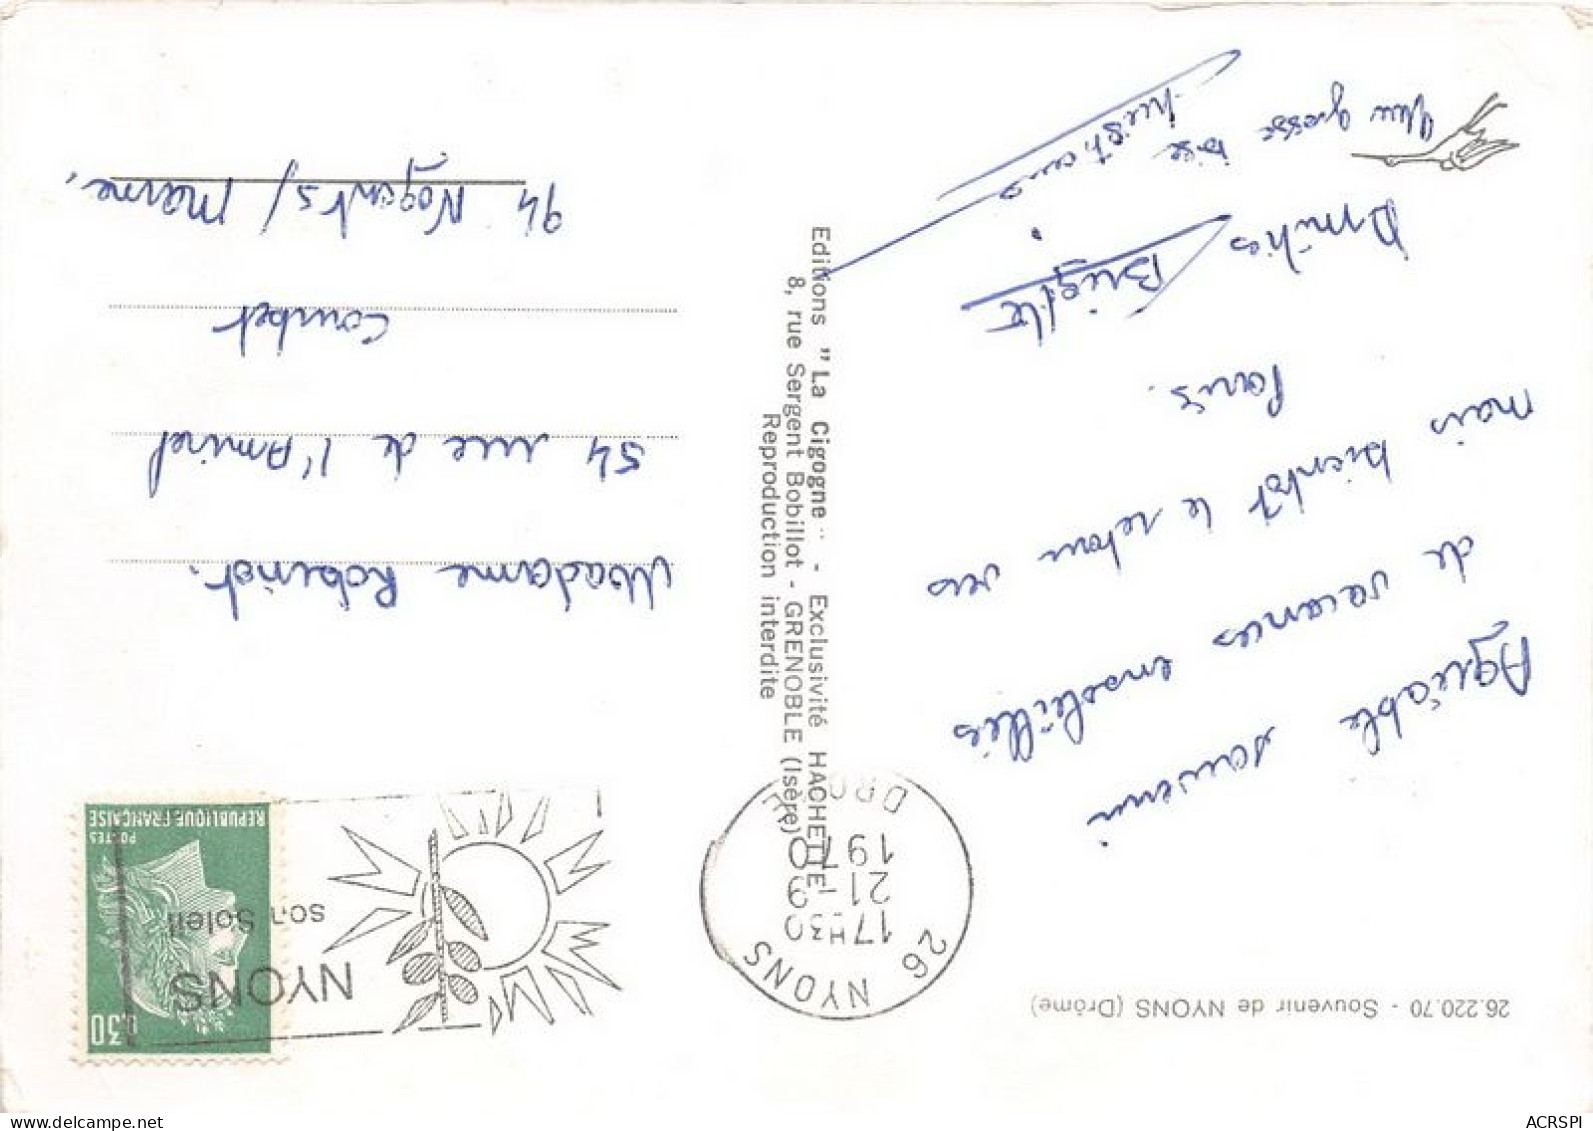 26.220.70 - Souvenir de NYONS (Drôme)
Agréable souvenir
de vacances ensoleillés
mais bientôt le retour vers
Paris.
Amitiés
Brigitte
grosse bise
Editions "La Cigogne" - Exclusivité HACHETTE
8, rue Sergent Bobillot - GRENOBLE (Isère)
Reproduction interdite
26 NYONS
17H30
21-9
1970
DROME
NYONS
son Soleil
0,30
POSTES
REPUBLIQUE FRANÇAISE
Madame Robinot.
54 rue de l'Amiral
Courbet
94 Nogent s/ Marne,
ACRSPI